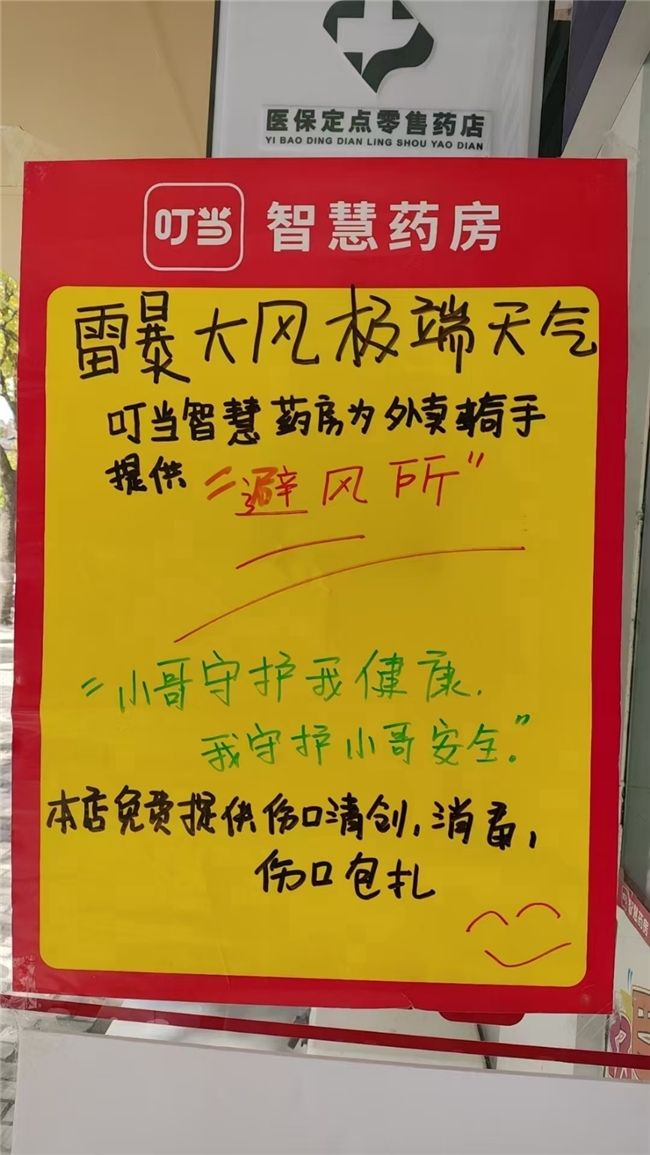 医保定点零售药店
YI BAO DING DIAN LING SHOU YAO DIAN
叮当 智慧药房
雷暴大风极端天气
叮当智慧药房为外卖骑手
提供“避风所”
“小哥守护我健康.
我守护小哥安全.”
本店免费提供伤口清创,消毒,
伤口包扎
智慧药房